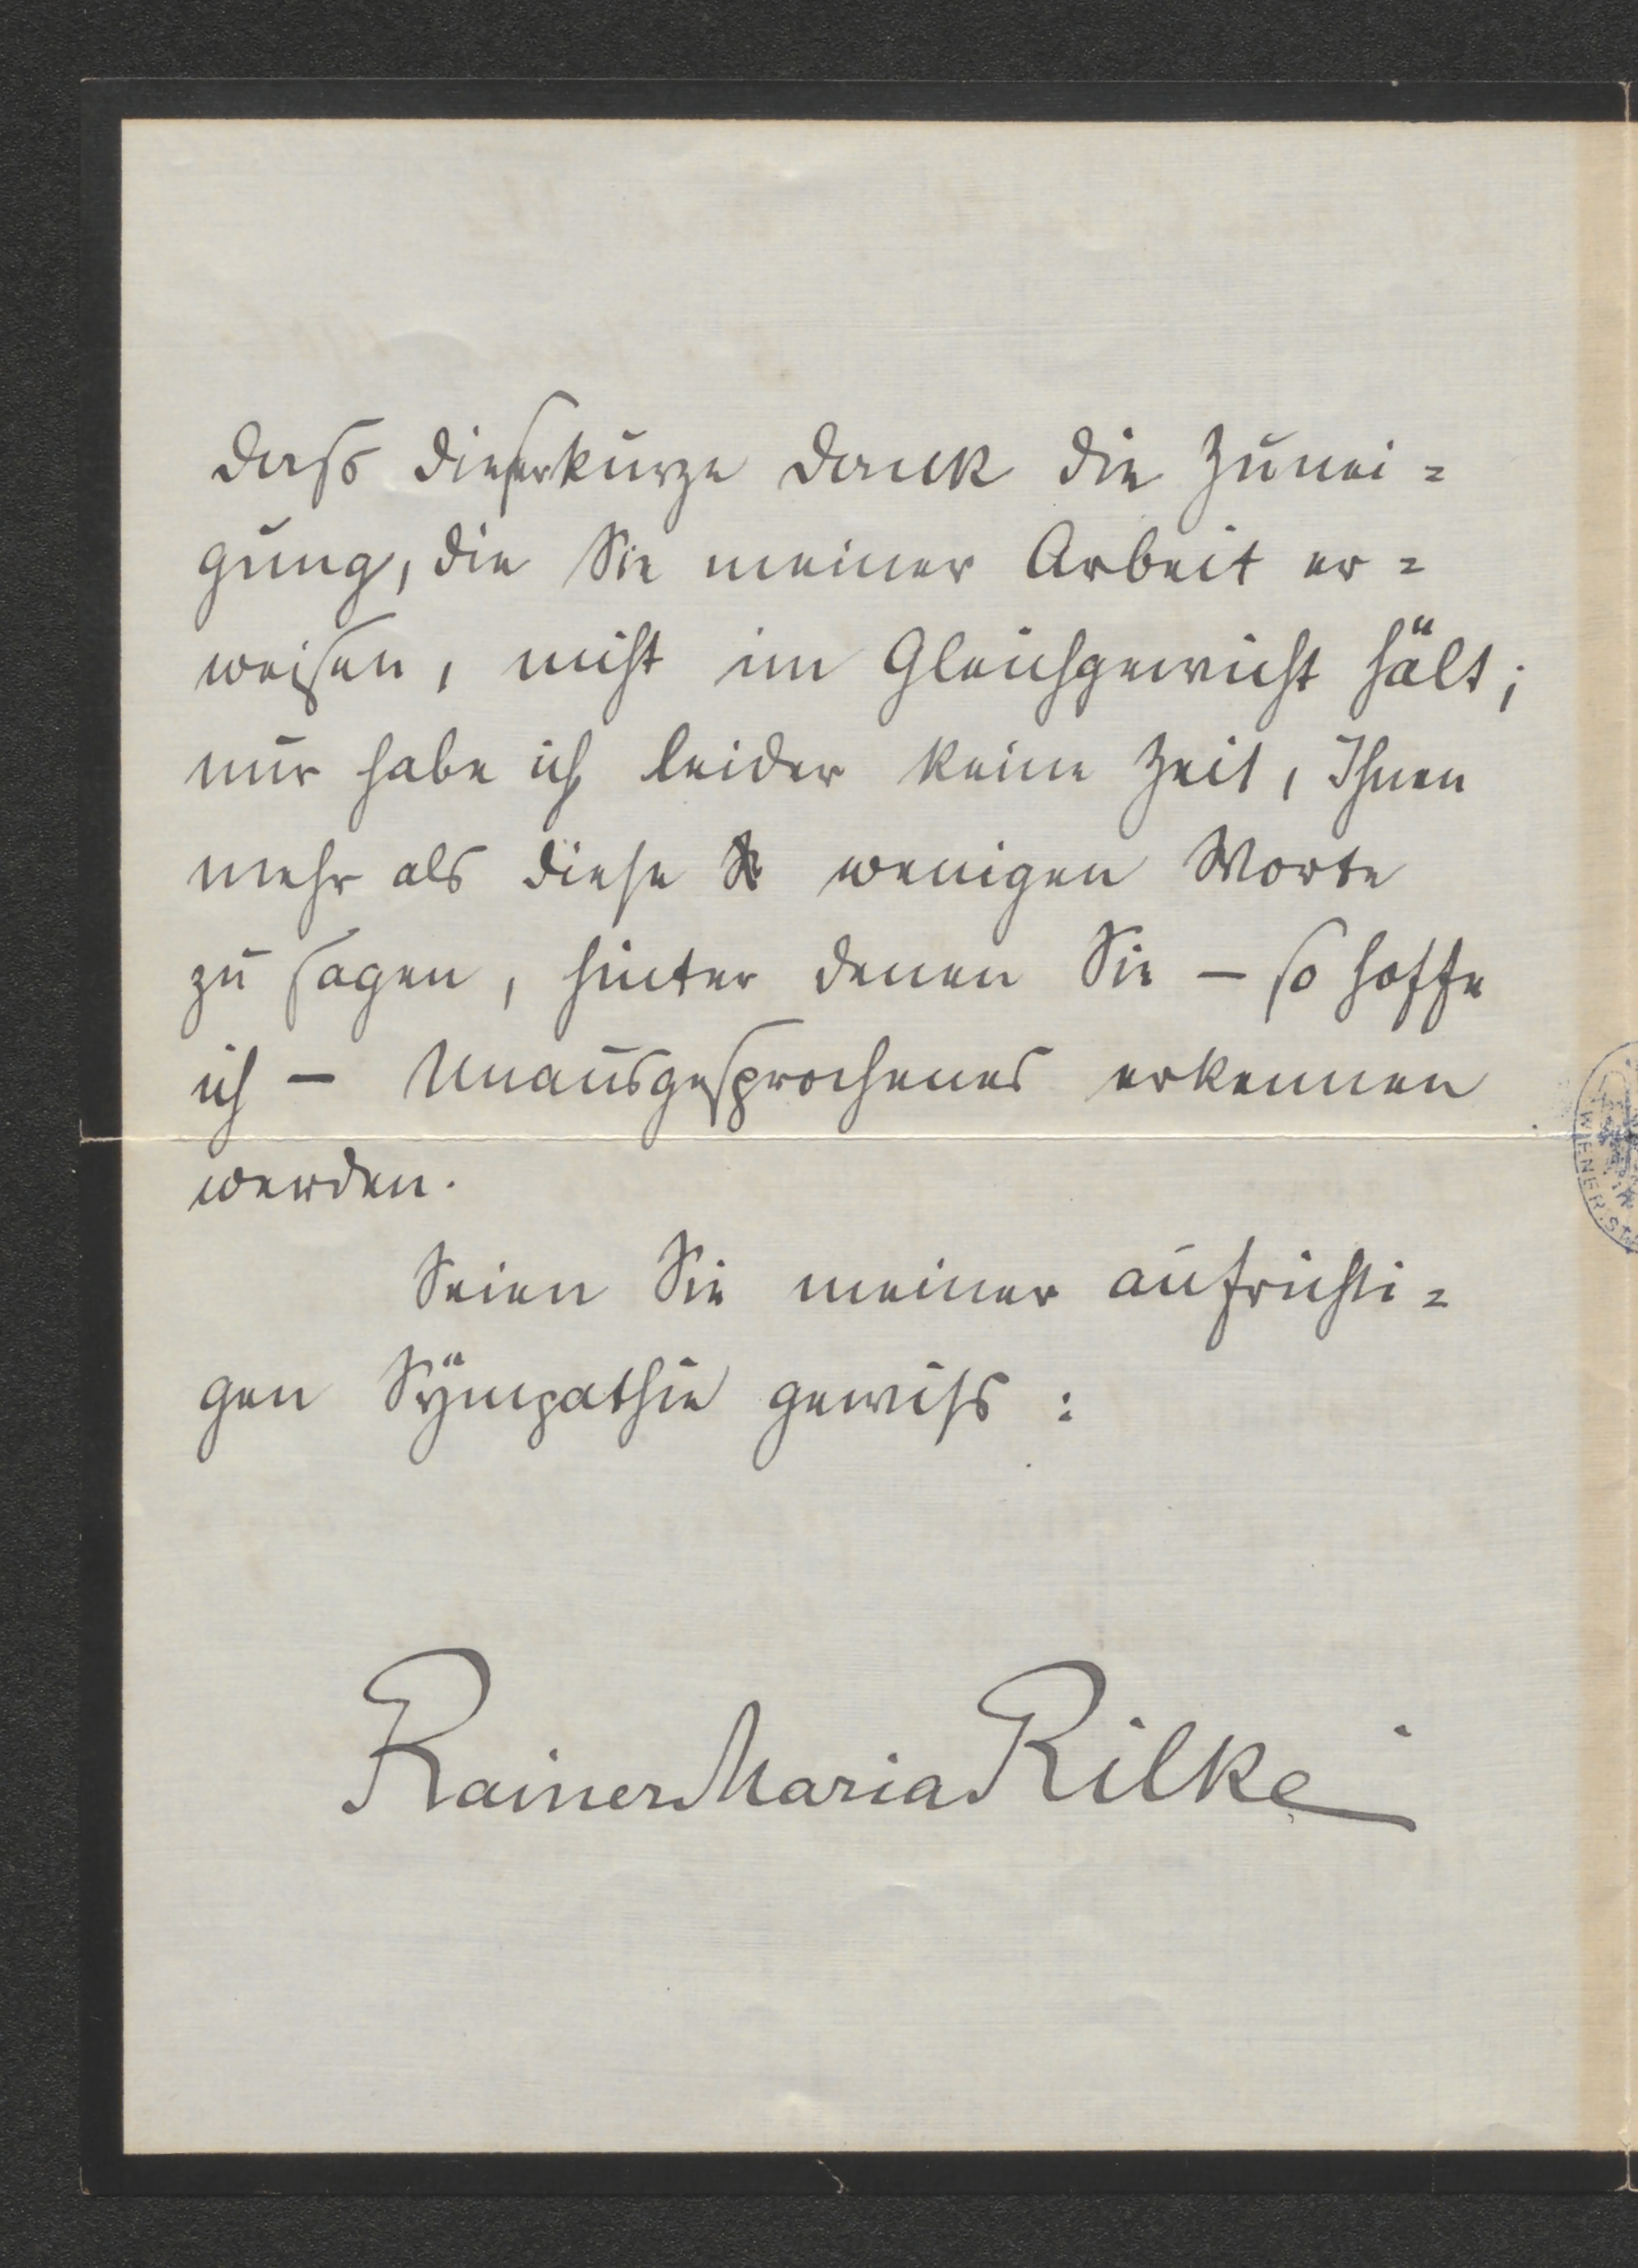 dass dieser kurze Dank die Zunei=
gung, die Sie meiner Arbeit er=
weisen, nicht im Gleichgewicht hält;
nur habe ich leider keine Zeit, Ihnen
mehr als diese wenigen Worte
zu sagen, hinter denen Sie – so hoffe
ich – Unausgesprochenes erkennen
werden.
Seien Sie meiner aufrichti=
gen Sÿmpathie gewiss :
Rainer Maria Rilke
WIENER